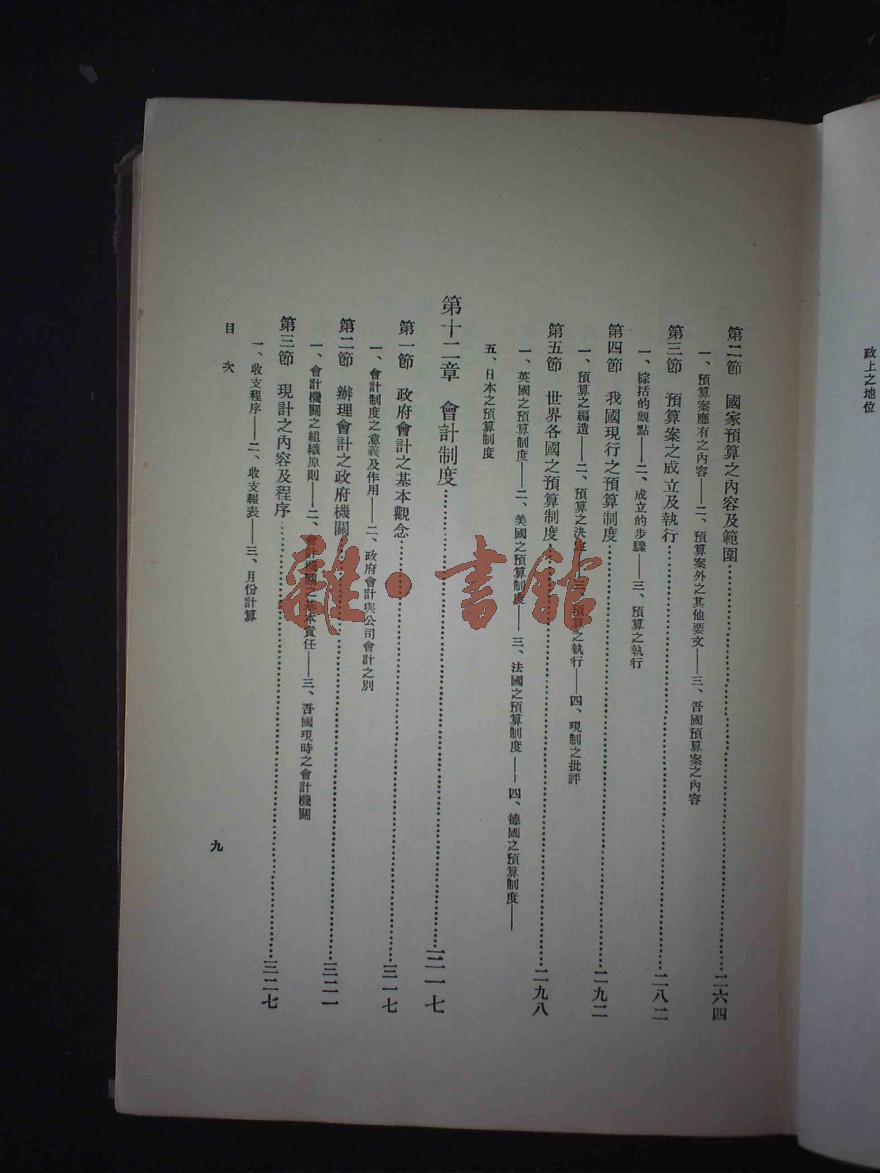 政上之地位
第二節　國家預算之內容及範圍……二六四
一、預算案應有之內容——二、預算案外之其他要文——三、吾國預算案之內容
第三節　預算案之成立及執行……二八二
一、綜括的觀點——二、成立的步驟——三、預算之執行
第四節　我國現行之預算制度……二九二
一、預算之編造——二、預算之決定——三、預算之執行——四、現制之批評
第五節　世界各國之預算制度……二九八
一、英國之預算制度——二、美國之預算制度——三、法國之預算制度——四、德國之預算制度——
五、日本之預算制度
第十二章　會計制度……三一七
第一節　政府會計之基本觀念……三一七
一、會計制度之意義及作用——二、政府會計與公司會計之別
第二節　辦理會計之政府機關……三二一
一、會計機關之組織原則——二、會計機關之基本責任——三、吾國現時之會計機關
第三節　現計之內容及程序……三二七
一、收支程序——二、收支報表——三、月份計算
目　次
九
雜·書館